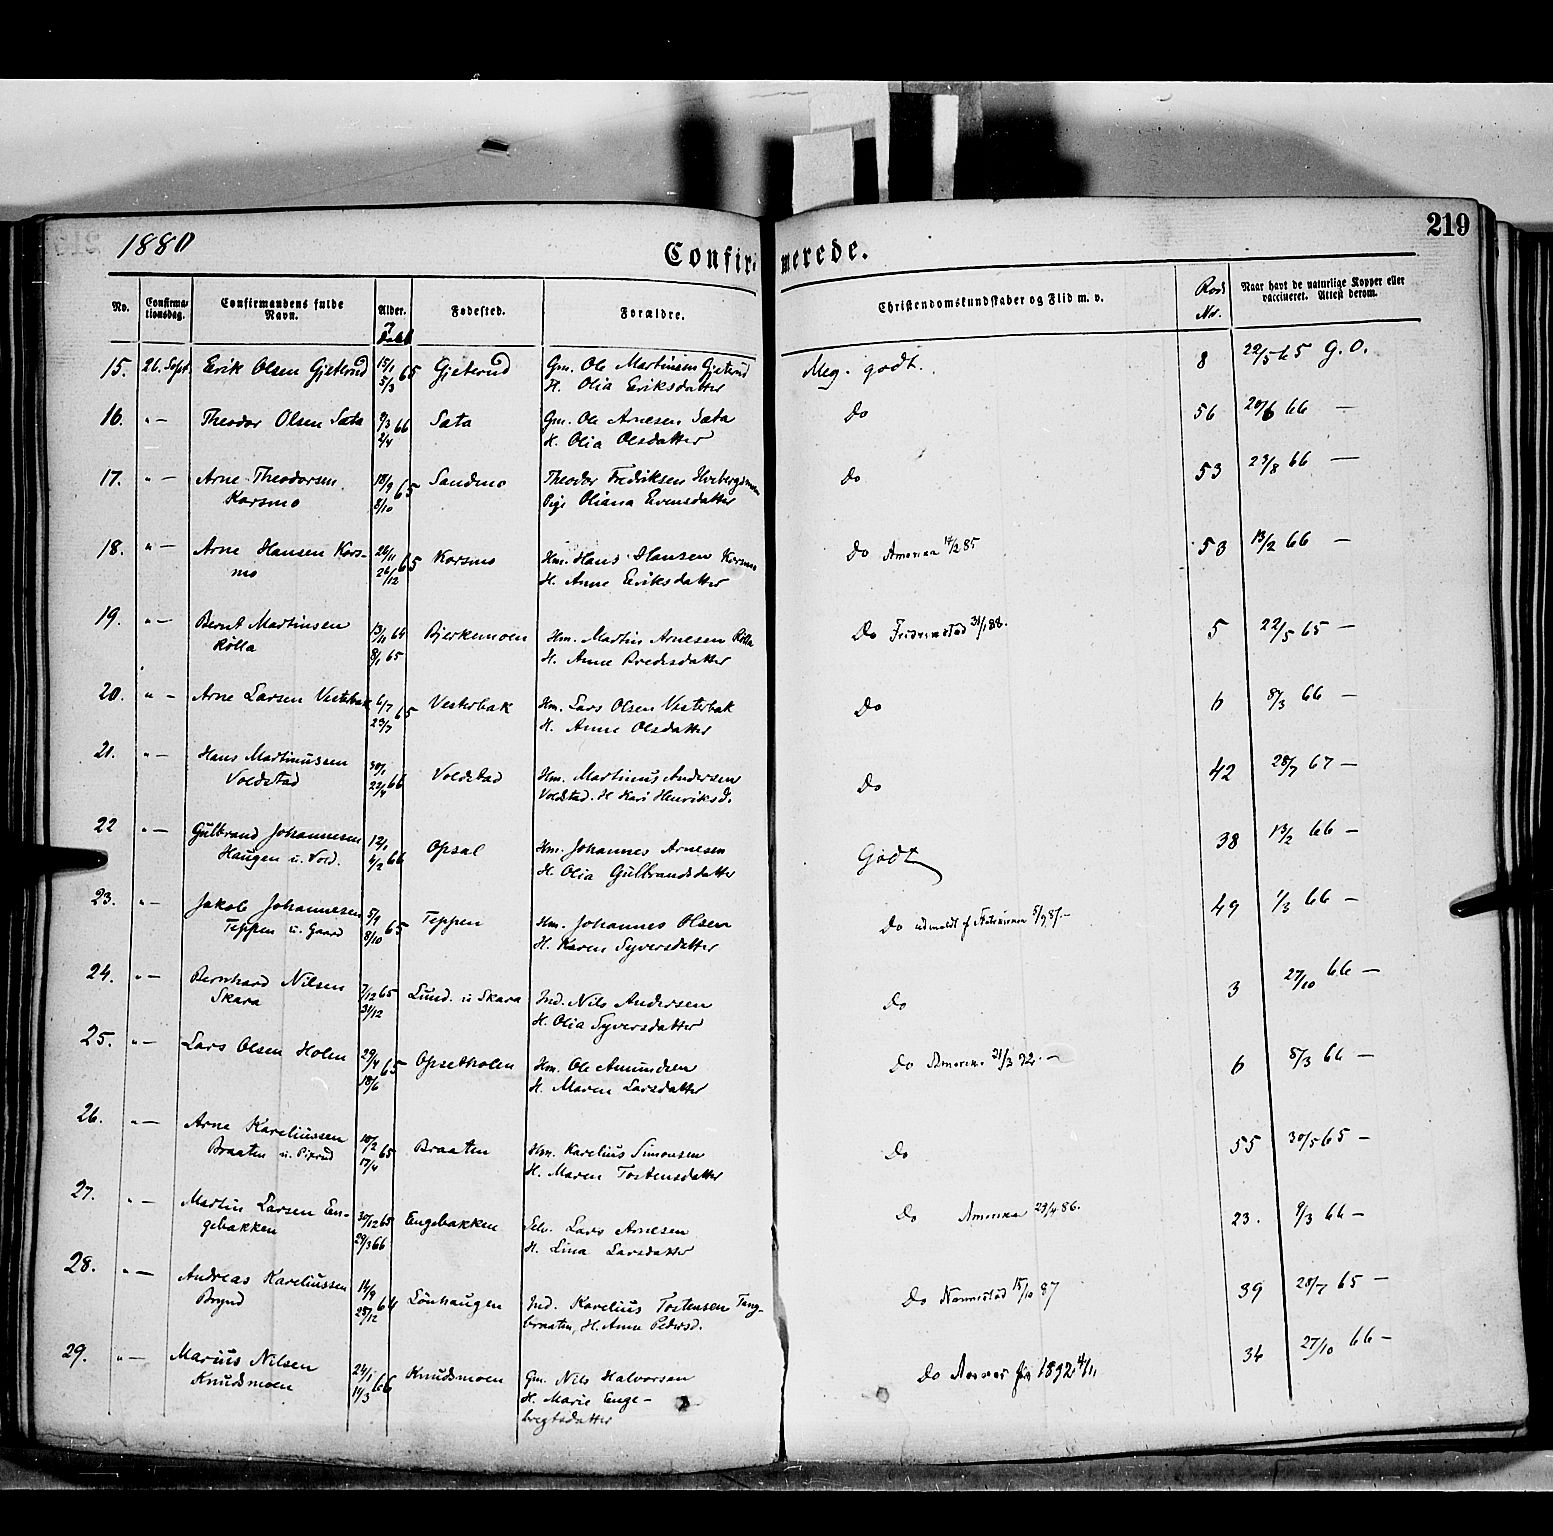 1880
Confirmerede.
219
No. Confirmationsdag. Confirmandens fulde Navn. Alder. Fødested. Forældre. Christendomskundskaber og Flid m. v. Naar havt de naturlige Kopper eller vaccineret. Attest derom.
15. 26. Sept. Erik Olsen Gjeterud 15/1 65 Gjeterud Gm. Ole Martinsen Gjeterud Meg. godt. 8 22/5 65 g. O.
5/3 H. Olia Eriksdatter
16. " — Theodor Olsen Sæta 9/3 66 Sæta Gm. Ole Arnesen Sæta do 56 20/6 66 —
2/4 H. Olia Olsdatter
17. " — Arne Theodorsen 18/9 65 Sandmo Theodor Fredriksen do 53 23/8 66 —
Korsmo 8/10 Pige Oliana Evensdatter
18. " — Arne Hansen Kors- 26/11 65 Korsmo Hm. Hans Hansen Korsmo do Amerika 14/2 85 53 13/2 66 —
mo 26/12 H. Anne Eriksdatter
19. " — Bernt Martinsen 13/11 64 Bjerkemoen Hm. Martin Arnesen Rølla do 31/1 88. 5 22/5 65 —
Rølla 8/1 65 H. Anne Bredesdatter
20. " — Arne Larsen Vesterbak 6/7 65 Vesterbak Hm. Lars Olsen Vesterbak do 6 8/3 66 —
23/7 H. Anne Olsdatter
21. " — Hans Martinussen 30/1 Voldstad Hm. Martinus Andersen do 42 28/7 67 —
Voldstad 22/4 66 Voldstad. H Kari Henriksd.
22 " — Gulbrand Johannesen 12/1 Opsal Hm. Johannes Arnesen Godt 38 13/2 66 —
Haugen u. Vold. 4/2 66 H. Olia Gulbrandsdatter
23. " — Jakob Johannesen 5/9 65 Teppen Hm. Johannes Olsen do udmeldt f Statskirken 49 1/3 66 —
Teppen u. Gaard 8/10 H. Karen Syversdatter
24. " — Bernhard Nilsen 7/12 65 Lund. u Skara Ind. Nils Andersen do 3 27/10 66 —
Skara 31/12 H. Olia Syversdatter
25. " — Lars Olsen Holen 29/4 65 Opsetholen Hm. Ole Amundsen do Amerika 31/3 92. — 6 8/3 66 —
18/6 H. Maren Larsdatter
26. " — Arne Kareliussen 10/2 65 Braaten Hm. Karelius Simonsen do 55 30/5 65 —
Braaten u. Piprud 17/4 H. Maren Tostensdatter
27. " — Martin Larsen En- 30/12 65 Engebakken Selv. Lars Arnesen do Amerika 29/4 86. 23. 9/3 66 —
gebakken 29/3 66 H. Lina Larsdatter
28. " — Andreas Kareliussen 14/9 64 Lönhaugen Ind. Karelius Tostensen Tang- do Nannestad 15/10 87 39 28/7 65 —
Brynd 28/12 braaten, H. Anne Pedersd.
29. " — Marius Nilsen 24/1 66 Knudsmoen Gm. Nils Halvorsen do 1892 4/11 34 27/10 66 —
Knudsmoen 11/3 H. Marie Enge-
bregtsdatter